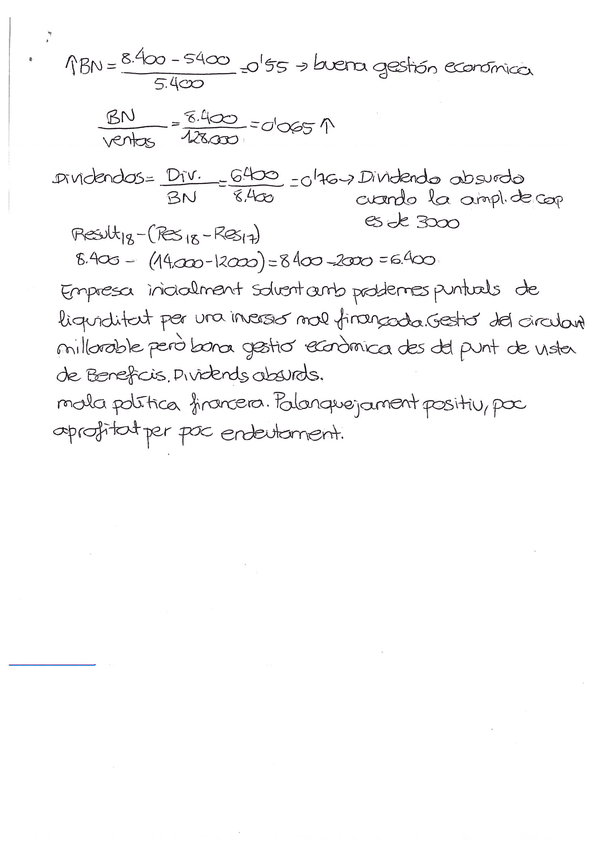 ↑BN = 8.400 - 5400 / 5.400 = 0'55 → buena gestión económica
BN / ventas = 8.400 / 128.000 = 0'065 ↑
Dividendos = Div. / BN = 6400 / 8.400 = 0'76 → Dividendo absurdo
cuando la ampl. de cap
es de 3000
Result18 - (Res18 - Res17)
8.400 - (14.000 - 12000) = 8400 - 2000 = 6.400
Empresa inicialment solvent amb problemes puntuals de
liquiditat per una inversió mal finançada. Gestió del circulant
millorable però bona gestió econòmica des del punt de vista
de Beneficis. Dividends absurds.
mala política financera. Palanquejament positiu, poc
aprofitat per poc endeutament.